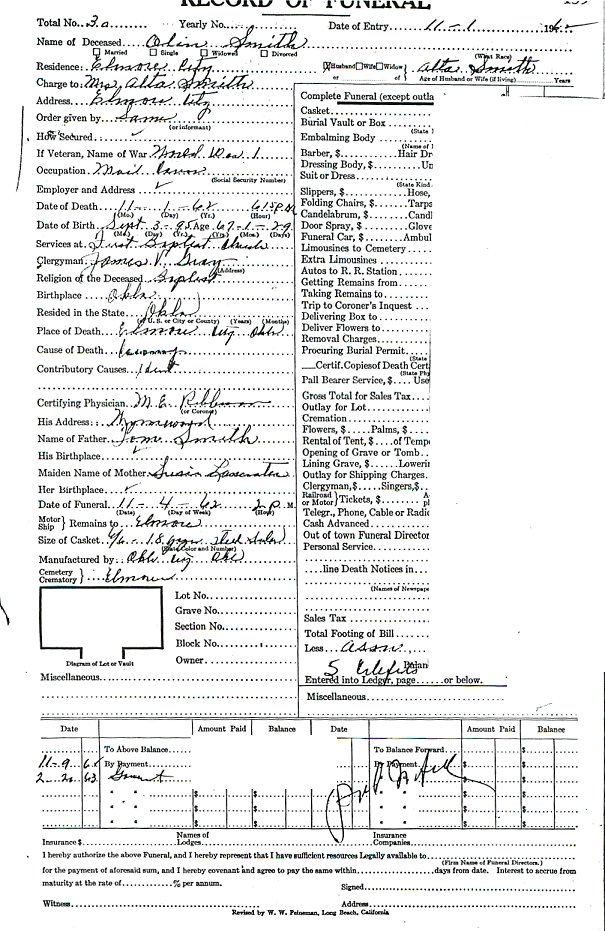 RECORD OF FUNERAL
Total No. 30 Yearly No. Date of Entry 11-1 196
Name of Deceased Olin Smith
Married Single Widowed Divorced (What Race)
Residence: Elmore City Husband Wife Widow Alta Smith
or of Age of Husband or Wife (if living) Years
Charge to: Mrs Alta Smith
Address Elmore City
Order given by Same
(or informant)
How Secured
If Veteran, Name of War World War 1
Occupation Mail
(Social Security Number)
Employer and Address
Date of Death 11-1-62 P.M.
(Mo.) (Day) (Yr.) (Hour)
Date of Birth Sept 3-95 Age 67-1-29
(Mo.) (Day) (Yr.) (Yrs.) (Mos.) (Days)
Services at First Baptist Church
Clergyman James V. Gray
(Address)
Religion of the Deceased Baptist
Birthplace Okla
Resided in the State Okla
(or U. S. or City or County) (Years) (Months)
Place of Death Elmore City Okla
Cause of Death Coronary
Contributory Causes
Certifying Physician M. E.
(or Coroner)
His Address: Wynnewood
Name of Father Tom Smith
His Birthplace
Maiden Name of Mother Susie
Her Birthplace
Date of Funeral 11-4-62 2 P. M.
(Date) (Day of Week) (Hour)
Motor Ship Remains to Elmore
Size of Casket 6/6 - 18
(State Color and Number)
Manufactured by Okla City Okl
Cemetery Crematory Elmore
Lot No.
Grave No.
Section No.
Block No.
Owner
Diagram of Lot or Vault
Miscellaneous
Complete Funeral (except outla
Casket
Burial Vault or Box
(State
Embalming Body
(Name of
Barber, $ Hair Dr
Dressing Body, $ Un
Suit or Dress
(State Kind
Slippers, $ Hose,
Folding Chairs, $ Tarps
Candelabrum, $ Candl
Door Spray, $ Glove
Funeral Car, $ Ambul
Limousines to Cemetery
Extra Limousines
Autos to R. R. Station
Getting Remains from
Taking Remains to
Trip to Coroner's Inquest
Delivering Box to
Deliver Flowers to
Removal Charges
Procuring Burial Permit
(State
Certif. Copies of Death Cert
(State Ph
Pall Bearer Service, $ Use
Gross Total for Sales Tax
Outlay for Lot
Cremation
Flowers, $ Palms, $
Rental of Tent, $ of Temp
Opening of Grave or Tomb
Lining Grave, $ Loweri
Outlay for Shipping Charges
Clergyman, $ Singers, $
Railroad or Motor Tickets, $ A pl
Telegr., Phone, Cable or Radio
Cash Advanced
Out of town Funeral Director
Personal Service
line Death Notices in
(Names of Newspape
Sales Tax
Total Footing of Bill
Less Assn
Balan
Entered into Ledger, page or below.
Miscellaneous
Date Amount Paid Balance Date Amount Paid Balance
To Above Balance To Balance Forward
11-9 62 By Payment By Payment
2-20 63
Insurance $ Names of Lodges Insurance Companies
I hereby authorize the above Funeral, and I hereby represent that I have sufficient resources Legally available to
(Firm Name of Funeral Directors.)
for the payment of aforesaid sum, and I hereby covenant and agree to pay the same within days from date. Interest to accrue from
maturity at the rate of % per annum. Signed
Witness Address
Revised by W. W. Feineman, Long Beach, California